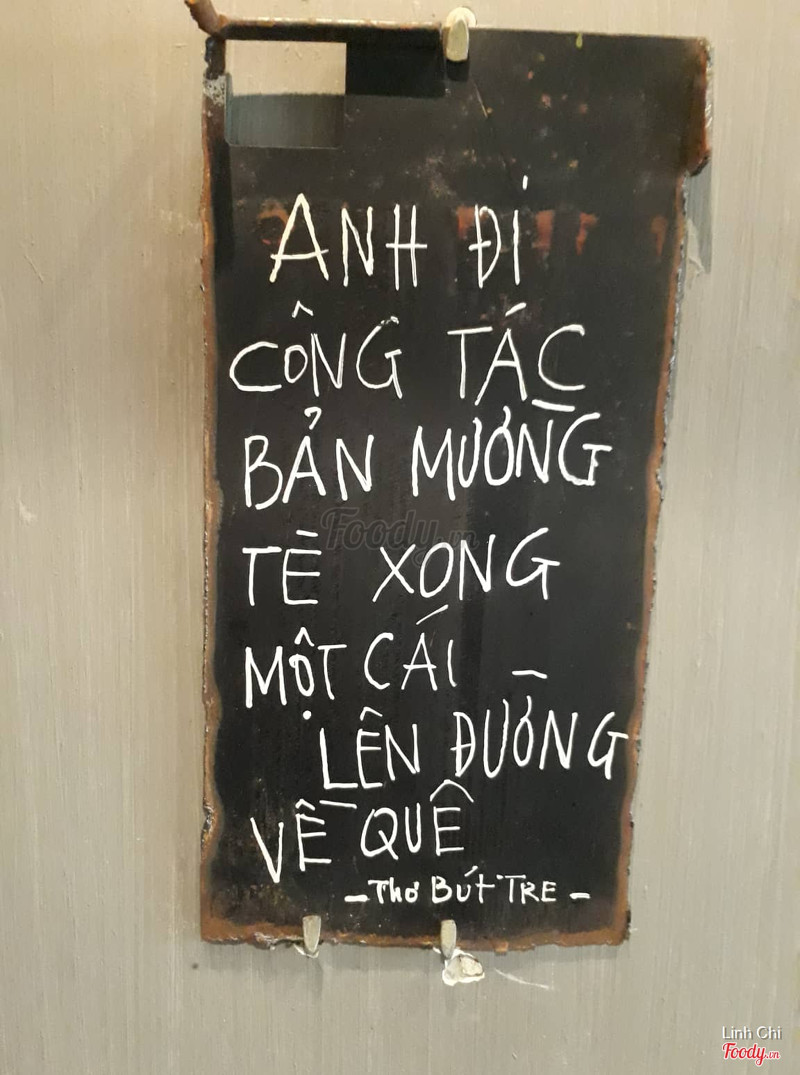 ANH ĐI
CÔNG TÁC
BẢN MƯỜNG
TÈ XONG
MỘT CÁI
LÊN ĐƯỜNG
VỀ QUÊ
- Thơ BÚT TRE -
Foody.vn
Linh Chi
Foody.vn